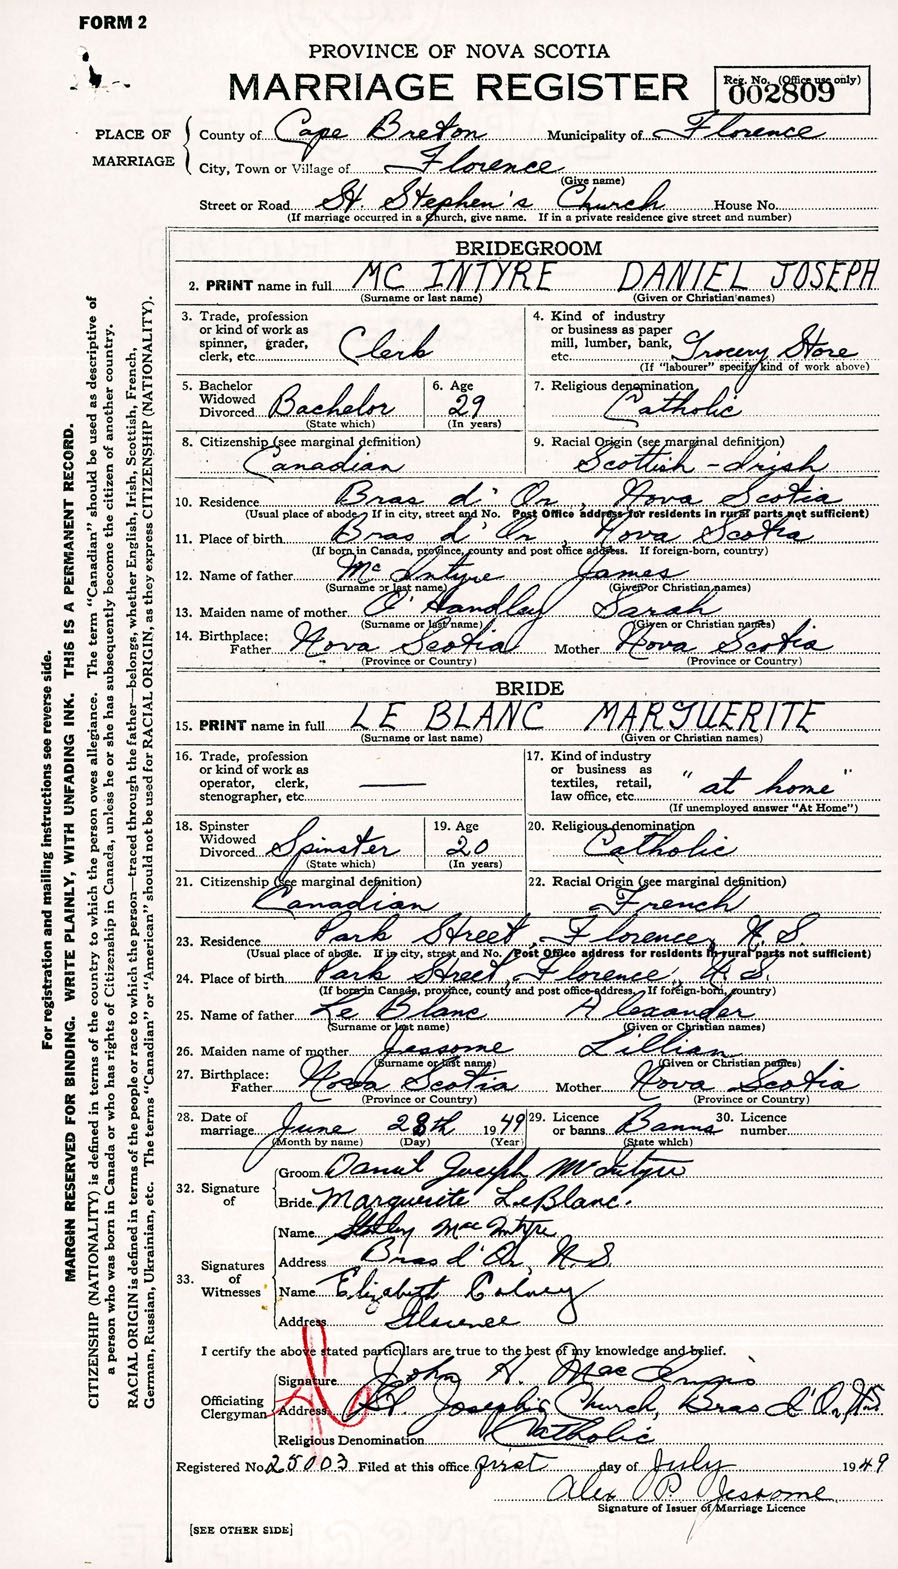 FORM 2
PROVINCE OF NOVA SCOTIA
MARRIAGE REGISTER
Reg. No. (Office use only)
002809
PLACE OF MARRIAGE
County of Cape Breton Municipality of Florence
City, Town or Village of Florence
(Give name)
Street or Road St. Stephen's Church House No.
(If marriage occurred in a church, give name. If in a private residence give street and number)
BRIDEGROOM
2. PRINT name in full MC INTYRE DANIEL JOSEPH
(Surname or last name) (Given or Christian names)
3. Trade, profession or kind of work as spinner, grader, clerk, etc. Clerk
4. Kind of industry or business as paper mill, lumber, bank, etc. Grocery Store
(If "labourer" specify kind of work above)
5. Bachelor Widowed Divorced Bachelor
(State which)
6. Age 29
(In years)
7. Religious denomination Catholic
8. Citizenship (see marginal definition) Canadian
9. Racial Origin (see marginal definition) Scottish - Irish
10. Residence Bras d' Or, Nova Scotia
(Usual place of abode. If in city, street and No. Post Office address for residents in rural parts not sufficient)
11. Place of birth Bras d' Or, Nova Scotia
(If born in Canada, province, county and post office address. If foreign-born, country)
12. Name of father Mc Intyre James
(Surname or last name) (Given or Christian names)
13. Maiden name of mother O'Handley Sarah
(Surname or last name) (Given or Christian names)
14. Birthplace: Father Nova Scotia Mother Nova Scotia
(Province or Country) (Province or Country)
BRIDE
15. PRINT name in full LE BLANC MARGUERITE
(Surname or last name) (Given or Christian names)
16. Trade, profession or kind of work as operator, clerk, stenographer, etc. —
17. Kind of industry or business as textiles, retail, law office, etc. "at home"
(If unemployed answer "At Home")
18. Spinster Widowed Divorced Spinster
(State which)
19. Age 20
(In years)
20. Religious denomination Catholic
21. Citizenship (see marginal definition) Canadian
22. Racial Origin (see marginal definition) French
23. Residence Park Street, Florence, N. S.
(Usual place of abode. If in city, street and No. Post Office address for residents in rural parts not sufficient)
24. Place of birth Park Street, Florence, N. S.
(If born in Canada, province, county and post office address. If foreign-born, country)
25. Name of father Le Blanc Alexander
(Surname or last name) (Given or Christian names)
26. Maiden name of mother Jessome Lillian
(Surname or last name) (Given or Christian names)
27. Birthplace: Father Nova Scotia Mother Nova Scotia
(Province or Country) (Province or Country)
28. Date of marriage June 28th 1949
(Month by name) (Day) (Year)
29. Licence or banns Banns
(State which)
30. Licence number
32. Signature of
Groom Daniel Joseph McIntyre
Bride Marguerite LeBlanc.
33. Signatures of Witnesses
Name Mac Intyre
Address Bras d' Or, N. S.
Name Elizabeth
Address Florence
I certify the above stated particulars are true to the best of my knowledge and belief.
Officiating Clergyman
Signature John H. Mac
Address St. Joseph's Church, Bras d'Or, N.S.
Religious Denomination Catholic
Registered No. 25003 Filed at this office first day of July 1949
Alex P. Jessome
Signature of Issuer of Marriage Licence
[SEE OTHER SIDE]
For registration and mailing instructions see reverse side.
MARGIN RESERVED FOR BINDING. WRITE PLAINLY, WITH UNFADING INK. THIS IS A PERMANENT RECORD.
CITIZENSHIP (NATIONALITY) is defined in terms of the country to which the person owes allegiance. The term "Canadian" should be used as descriptive of
a person who was born in Canada or who has rights of Citizenship in Canada, unless he or she has subsequently become the citizen of another country.
RACIAL ORIGIN is defined in terms of the people or race to which the person—traced through the father—belongs, whether English, Irish, Scottish, French,
German, Russian, Ukrainian, etc. The terms "Canadian" or "American" should not be used for RACIAL ORIGIN, as they express CITIZENSHIP (NATIONALITY).